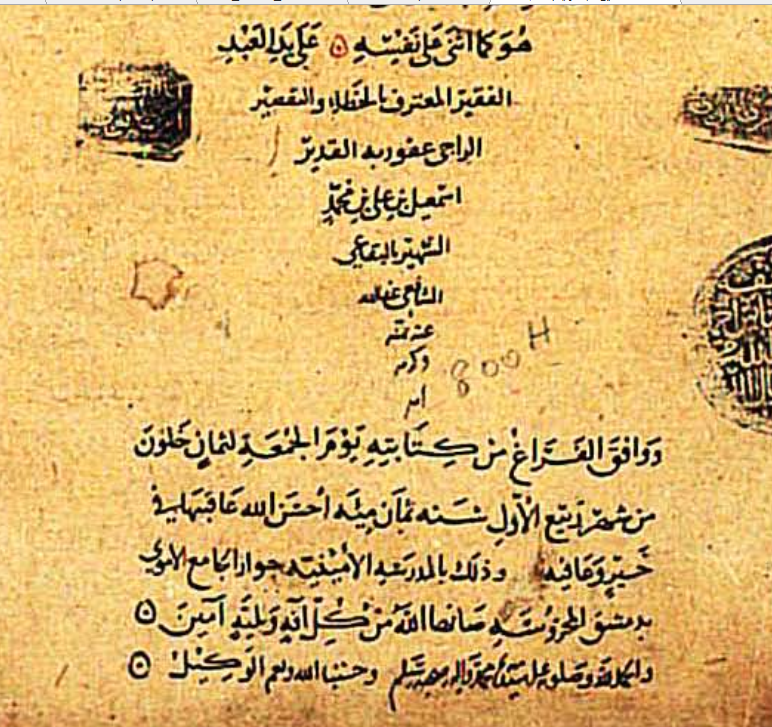 هو كما اثنى على نفسه ٥ على يد العبد
الفقير المعترف بالخطاء والتقصير
الراجى عفو ربه القدير
اسمعيل بن على بن محمد
الشهير بالبقاعي
الشافعي عفا الله
عنه بمنه
وكرمه
امين
800 H
ووافق الفراغ من كتابته يوم الجمعة لثمان خلون
من شهر ربيع الاول سنه ثمان ميه احسن الله عاقبتها في
خير وعافيه وذلك بالمدرسه الامينيه جوار الجامع الاموي
بدمشق المحروسه صانها الله من كل افه وبليه آمين ٥
والحمد لله وصلى على سيدنا محمد واله وصحبه وسلم وحسبنا الله ونعم الوكيل ٥